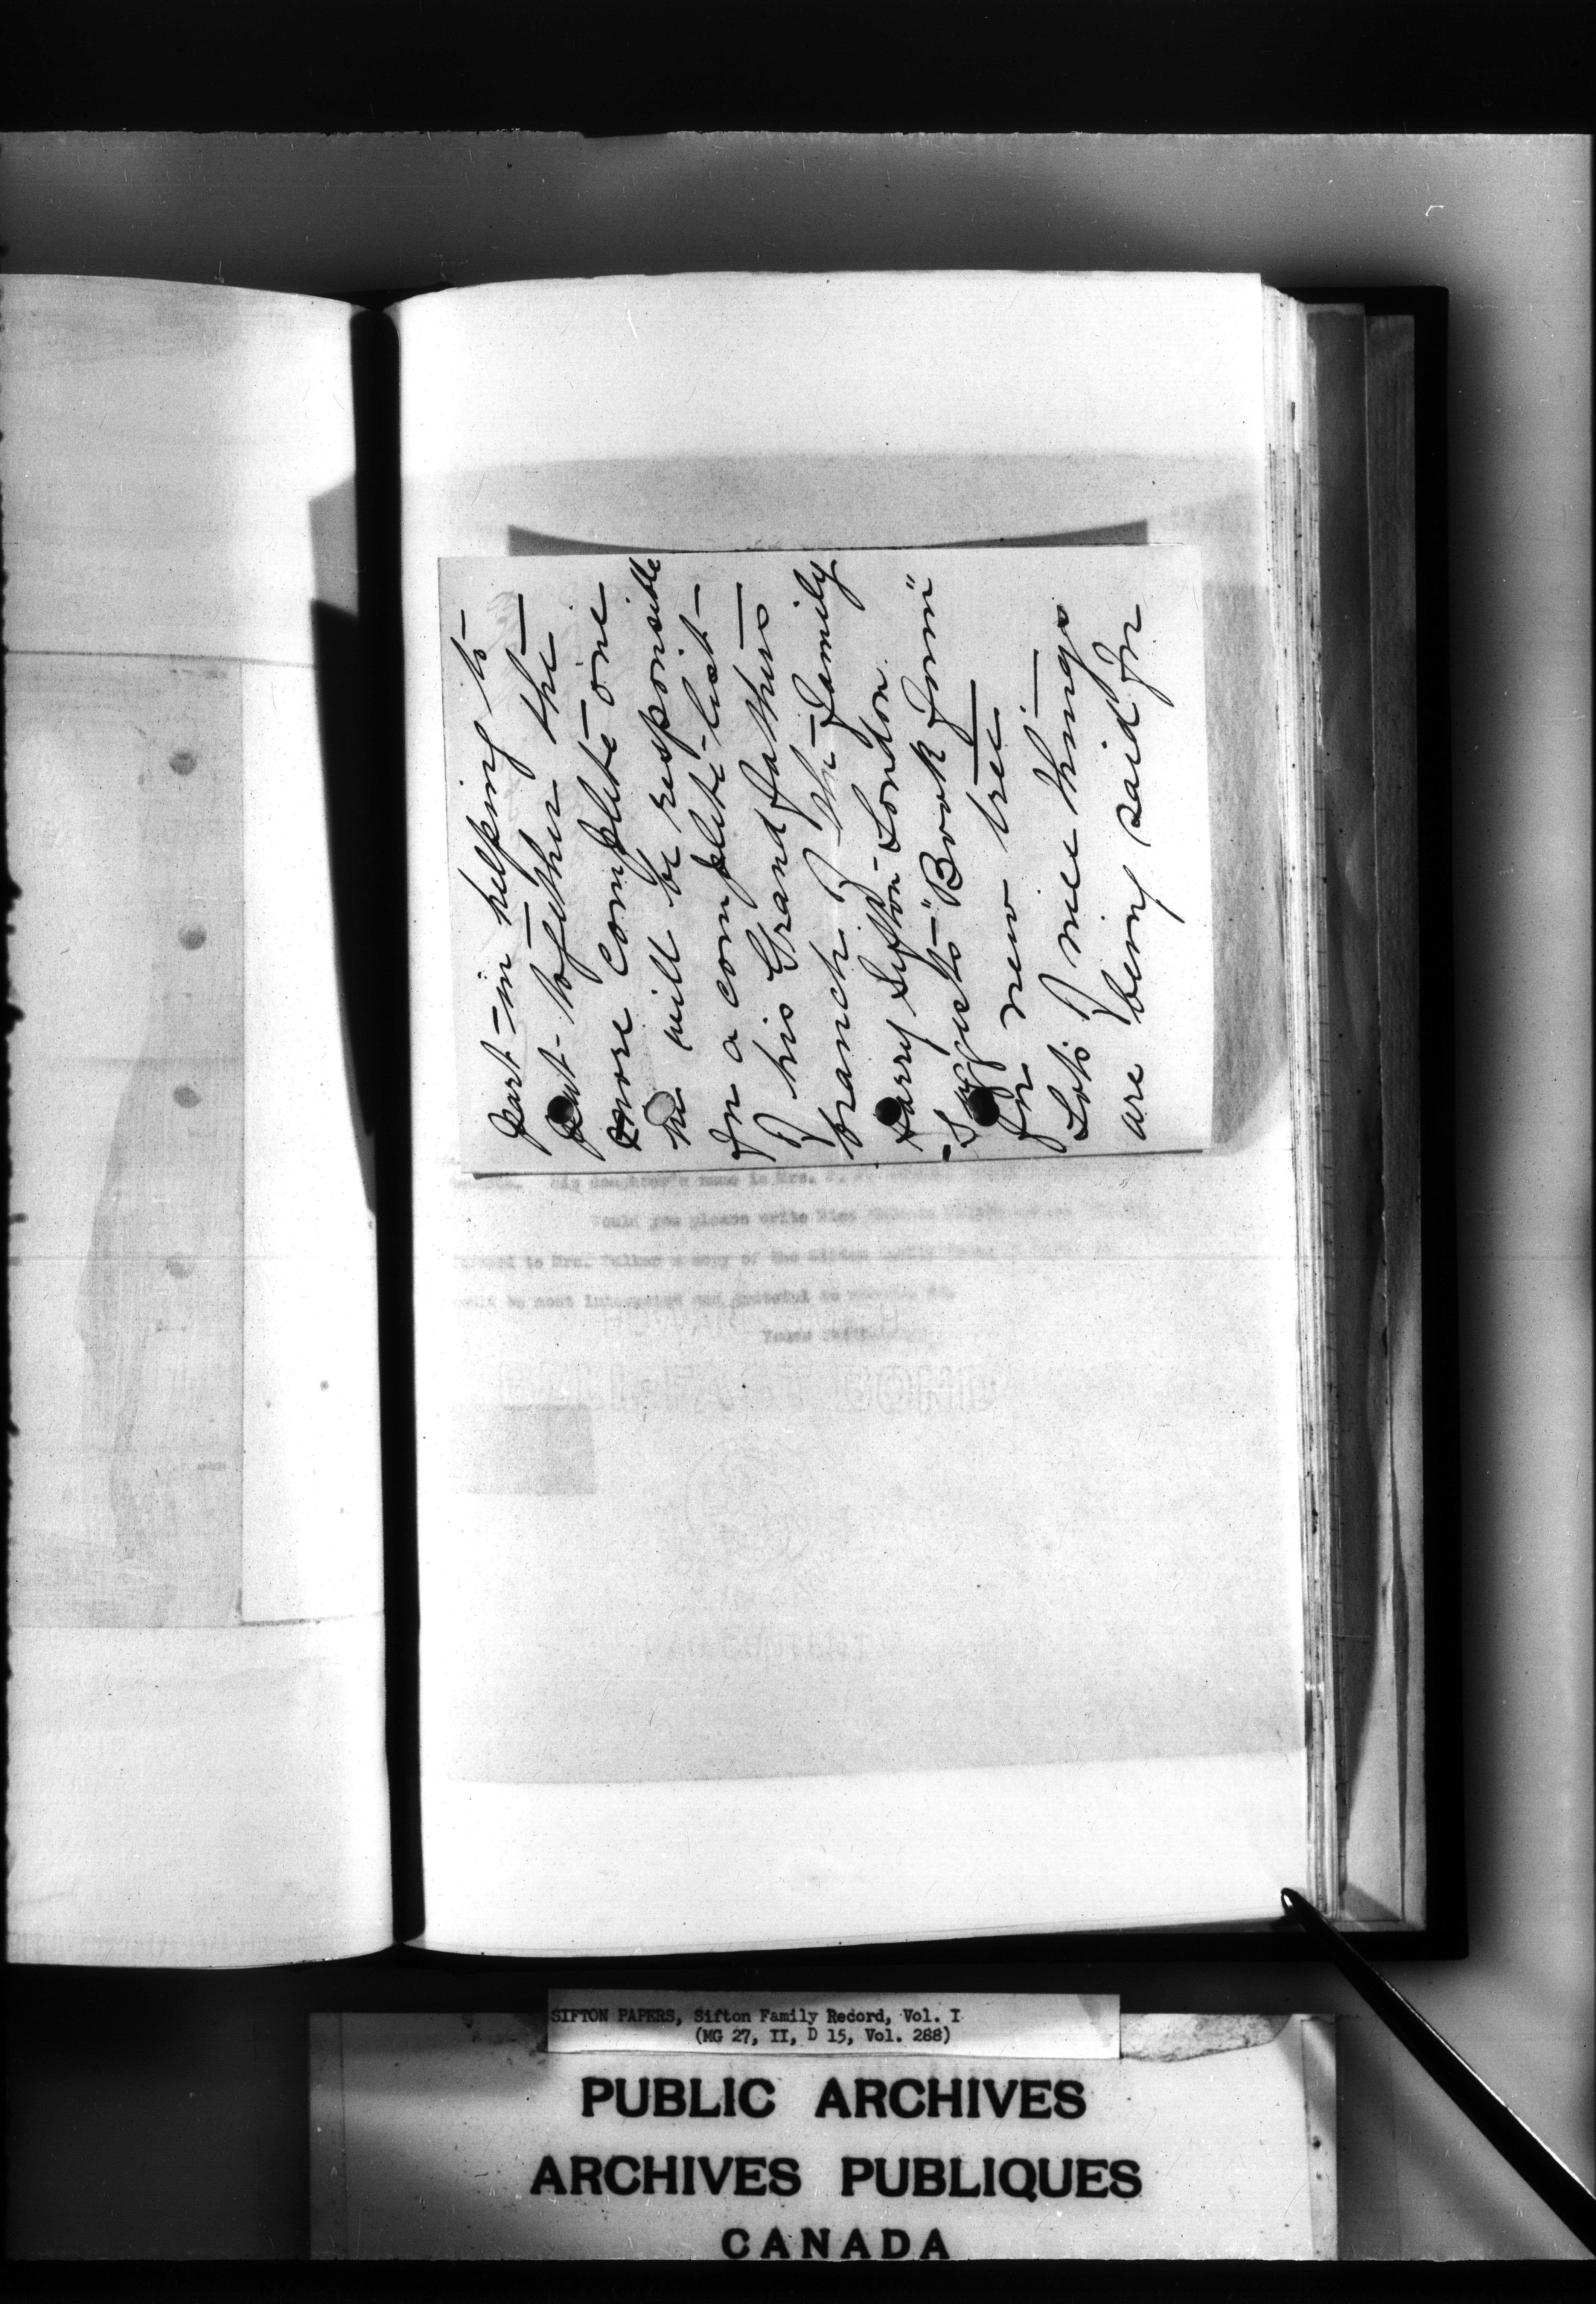 part - in helping to
put together the
more complete one
he will be responsible
for a complete list -
of his Grand fathers
branch of the family
Harry Sifton - London.
- Suggests - "Book form"
for new tree -
Lots of nice things
are being said for
daughter's name is Mrs.
Would you please write Miss
to Mrs. a copy of the Sifton
most interested and grateful to
Yours
SIFTON PAPERS, Sifton Family Record, Vol. I
(MG 27, II, D 15, Vol. 288)
PUBLIC ARCHIVES
ARCHIVES PUBLIQUES
CANADA